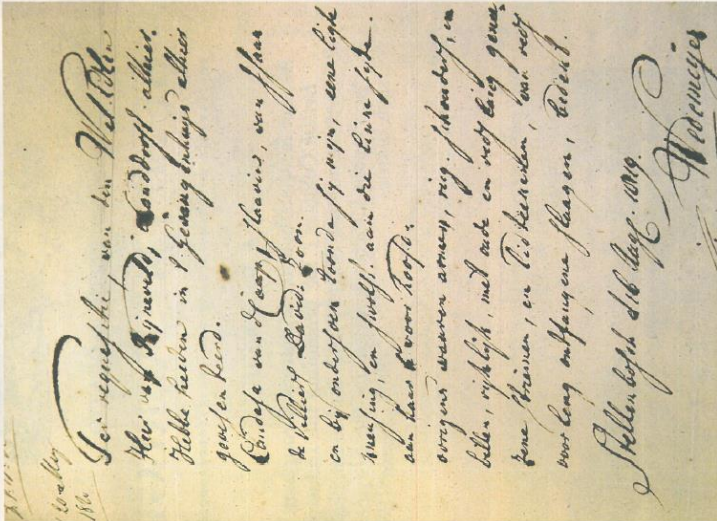 Ter requisitie, van den Wel. Edlen
Heer van Rijneveld, Landdrost alhier.
Hebbe heeden in 's Gevangenhuijs alhier
gevisenteerd.
Candasa van de Caap, Slaavin, van Haar
de Villiers Davids Zoon.
en bij ondersoek toonde sij mijn, eene ligte
en swelt. aan die linke sijde.
aan haar voor hoofd.
voorigens waaren armen, rug, schouders, en
billen, rijklijk, met oude en reets lang
zene strimen, en lidteekenen, van reets
voor lang ontfangene slaagen, bedekt.
Stellenbosch d 16 Aug. 1819
Wedemeijer